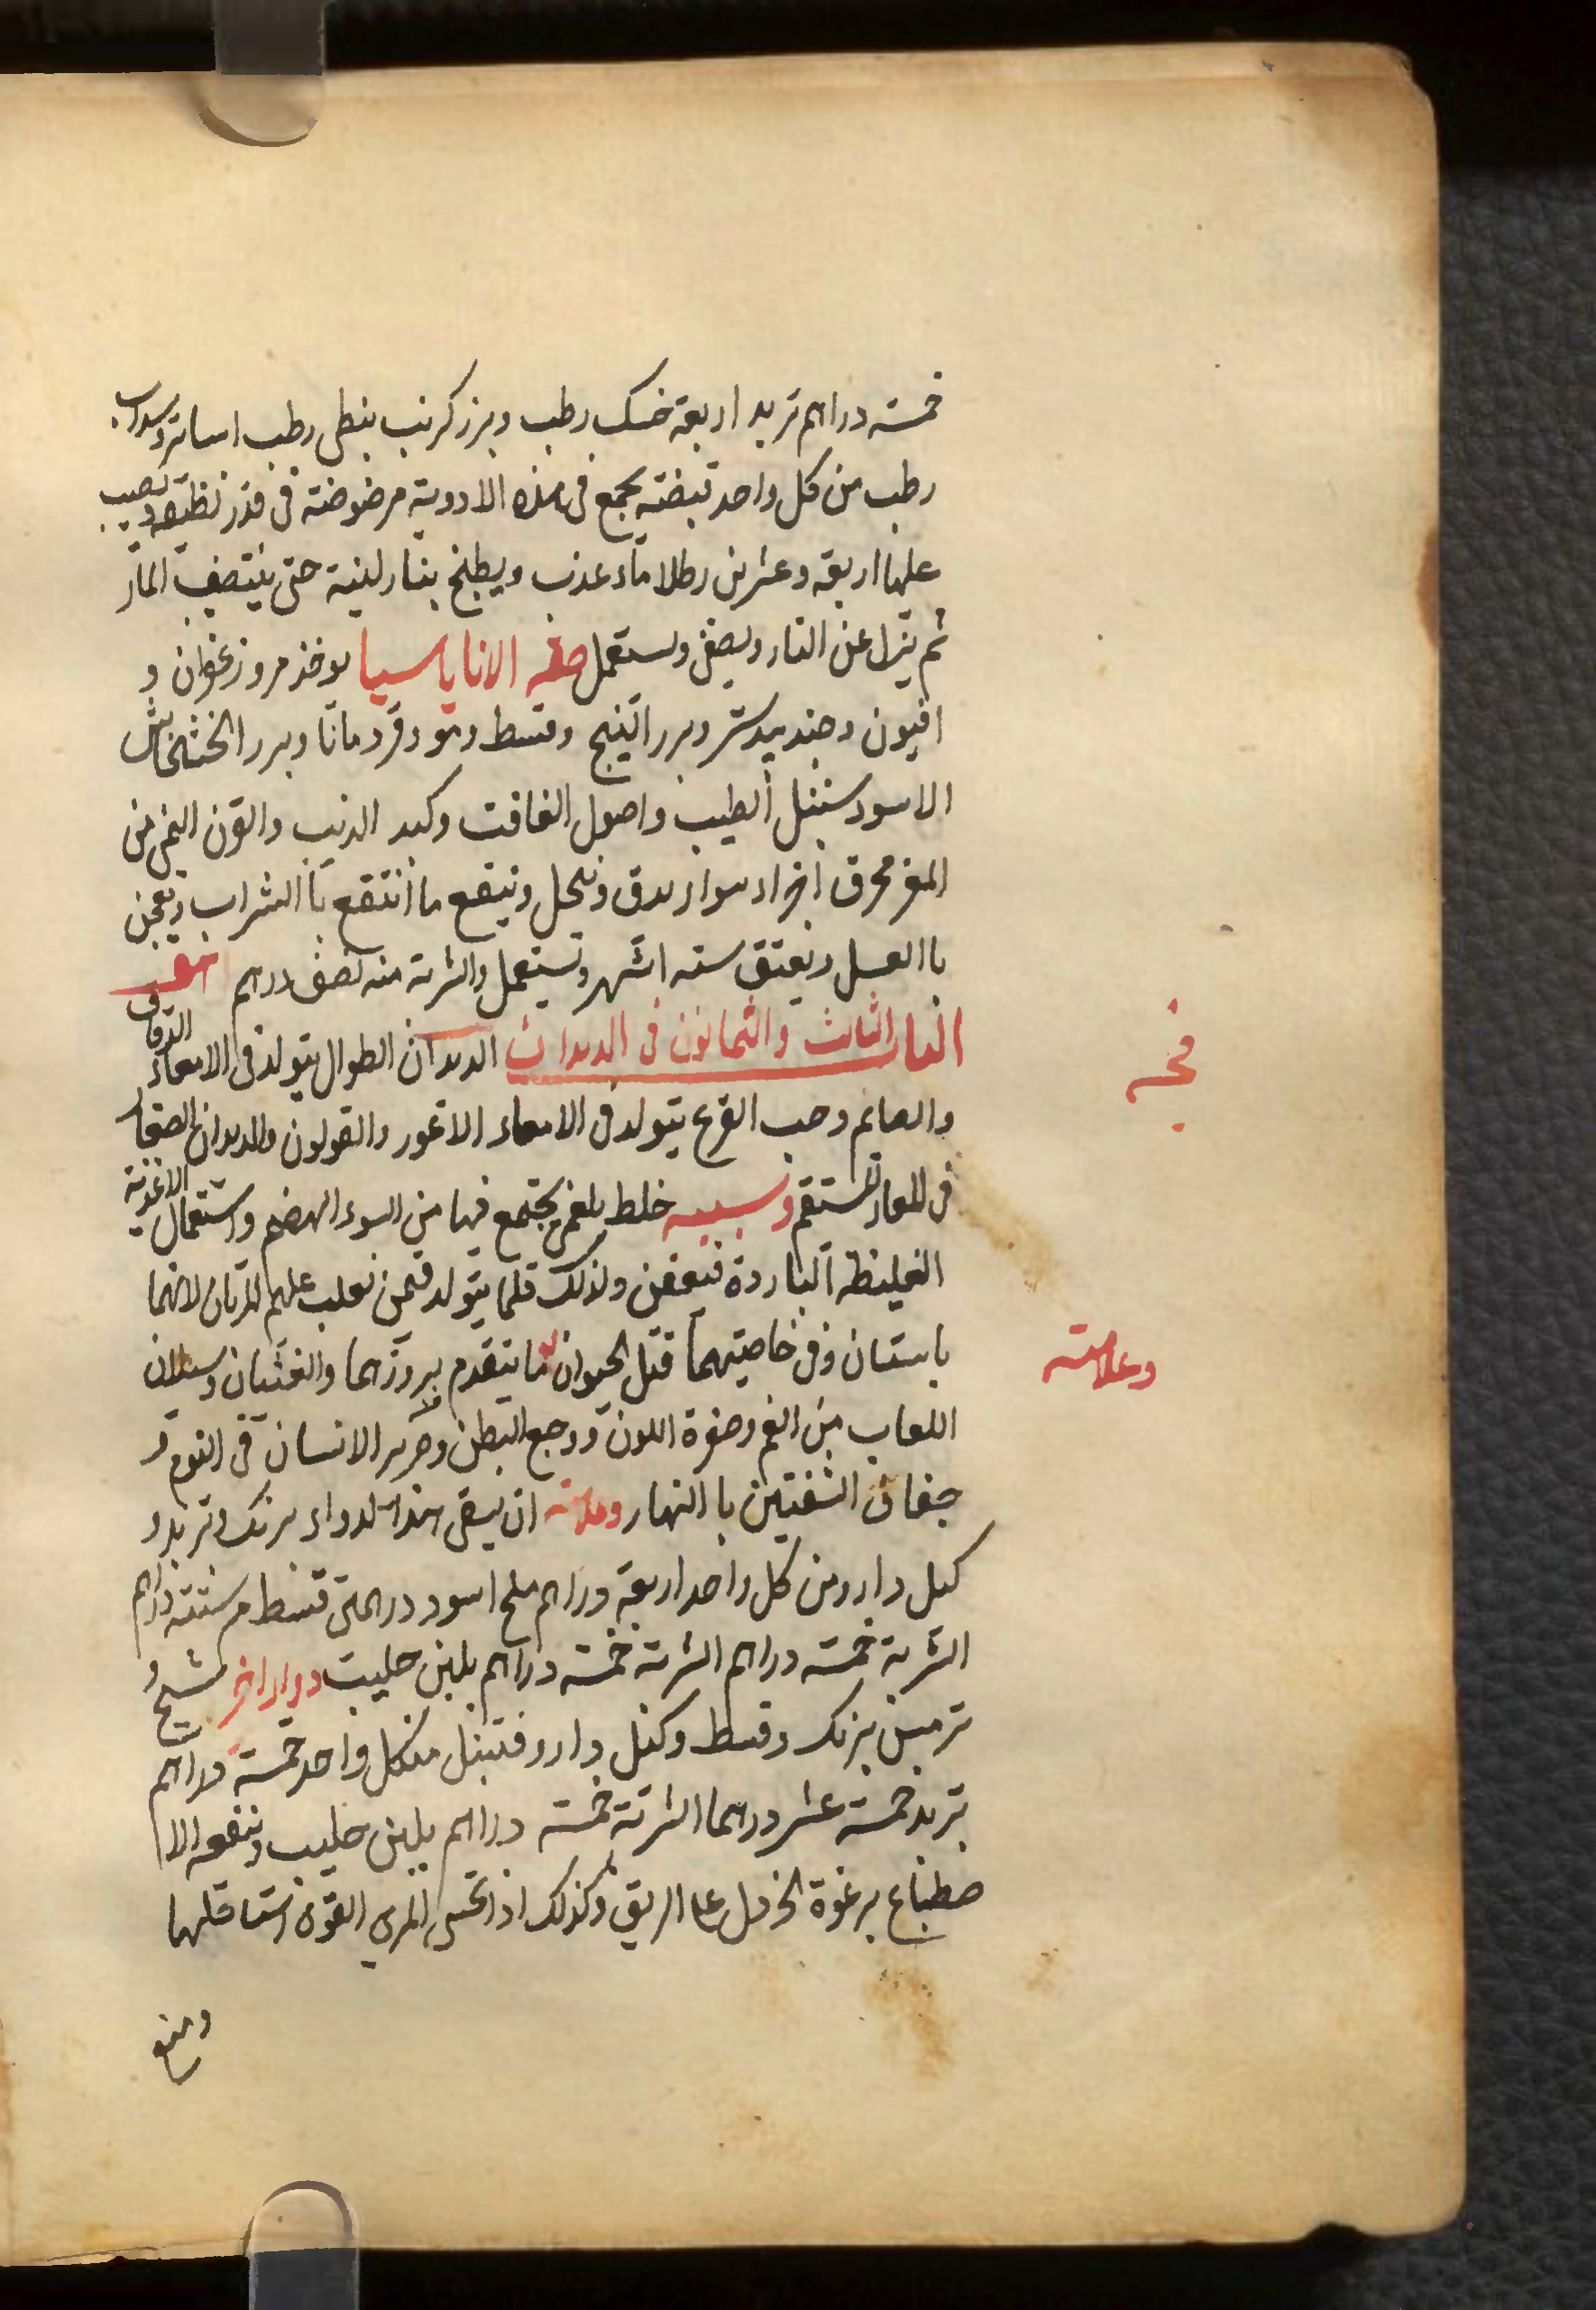 خمسة دراهم تربد اربعة خسك رطب وبزر كرنب بنطى رطب اسارون وسداب
رطب من كل واحد قبضته يجمع فى هذه الادوية مرضوضة فى قدر نظيفة ويصب
عليها اربعة وعشرين رطلا ماء عذب ويطبخ بنار لينة حتى ينتصف الماء
ثم ينزل عن النار ويصفى ويستعمل صفه الاناناسيا يوخذ مر وزعفران و
افيون وجندبيدستر وبزر البنج وقسط ومو وقردمانا وبزر الخشخاش
الاسود سنبل الطيب واصول الغافت وكبد الذئب والقرن اليمنى من
المعز محرق اجزاء سوا يدق وينخل وينقع ما انتقع باالشراب ويعجن
باالعسل ويعتق سته اشهر وتستعمل والشربة منه نصف درهم
الباب الثالث والثمانون فى الديدان الديدان الطوال يتولد فى الامعاء الدقاق
والصايم وحب القرع يتولد فى الامعاء الاعور والقولون والديدان الصغار
فى المعاء المستقيم وسببه خلط بلغمى يجتمع فيها من السوء الهضم واستعمال الاغذية
الغليظة الباردة فيعفن ولذلك قلما يتولد فيمن يغلب عليهم المرتان لانهما
يابستان وفى خاصيتهما قتل الحيوان ما يتقدم بروزهما والغثيان وسيلان
اللعاب من الفم وصفرة اللون ووجع البطن وصرير الانسان فى النوم و
جفاف الشفتين باالنهار وعلاجه ان يسقى هذا الدواء برنك وتربد و
كبل دارو من كل واحد اربعة دراهم ملح اسود درهمين قسط مر ستة دراهم
الشربة خمسة دراهم الشربة خمسة دراهم بلبن حليب دواء اخر شيح و
ترمس برنك وقسط وكبل دارو قنبيل من كل واحد خمسة دراهم
تربد خمسة عشر درهما الشربة خمسة دراهم بلبن حليب وينفعه الا
صطباغ برغوة الخردل على الريق وكذلك اذا تحسى المرى القوى استاقلها
ومنع
وعلامته